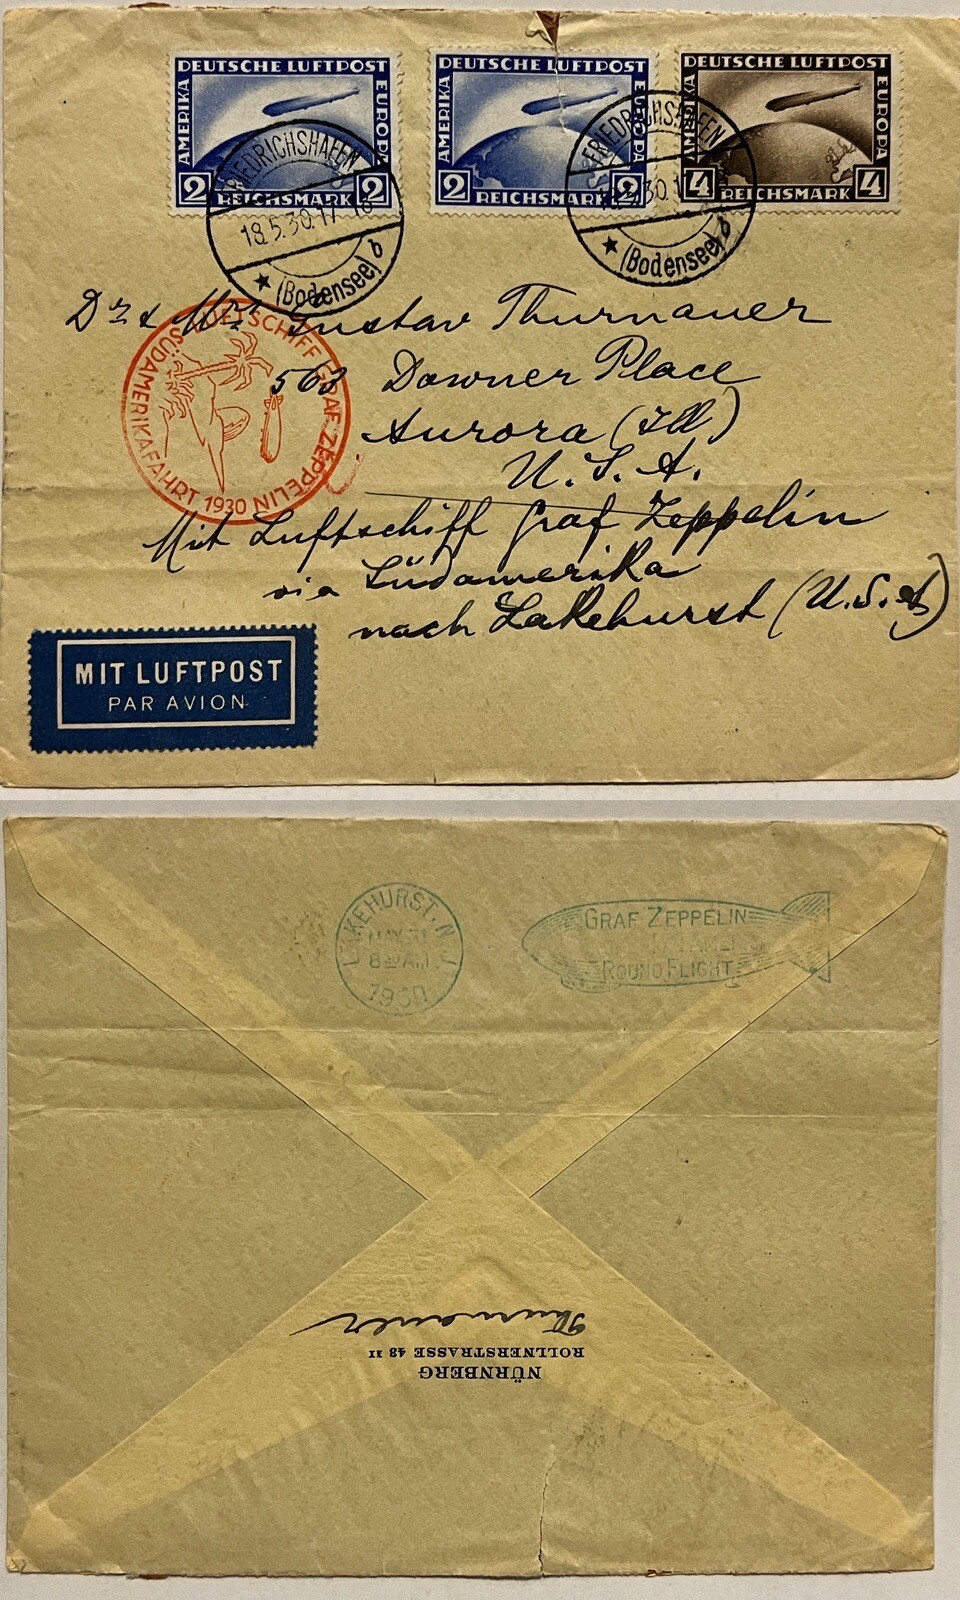 DEUTSCHE LUFTPOST
AMERIKA
EUROPA
2 REICHSMARK 2
DEUTSCHE LUFTPOST
AMERIKA
EUROPA
2 REICHSMARK 2
DEUTSCHE LUFTPOST
AMERIKA
EUROPA
4 REICHSMARK 4
FRIEDRICHSHAFEN
18.5.30.17-18
★ (Bodensee) b
FRIEDRICHSHAFEN
★ (Bodensee) b
Dr & Mrs Gustav Thurnauer
563 Downer Place
Aurora (Ill)
U. S. A.
LUFTSCHIFF GRAF ZEPPELIN
SÜDAMERIKAFAHRT 1930
Mit Luftschiff Graf Zeppelin
via Südamerika
nach Lakehurst (U.S.A)
MIT LUFTPOST
PAR AVION
LAKEHURST, N.J.
MAY 31
8 AM
1930
GRAF ZEPPELIN
ROUND FLIGHT
Thurnauer
ROLLNERSTRASSE 43 II
NÜRNBERG